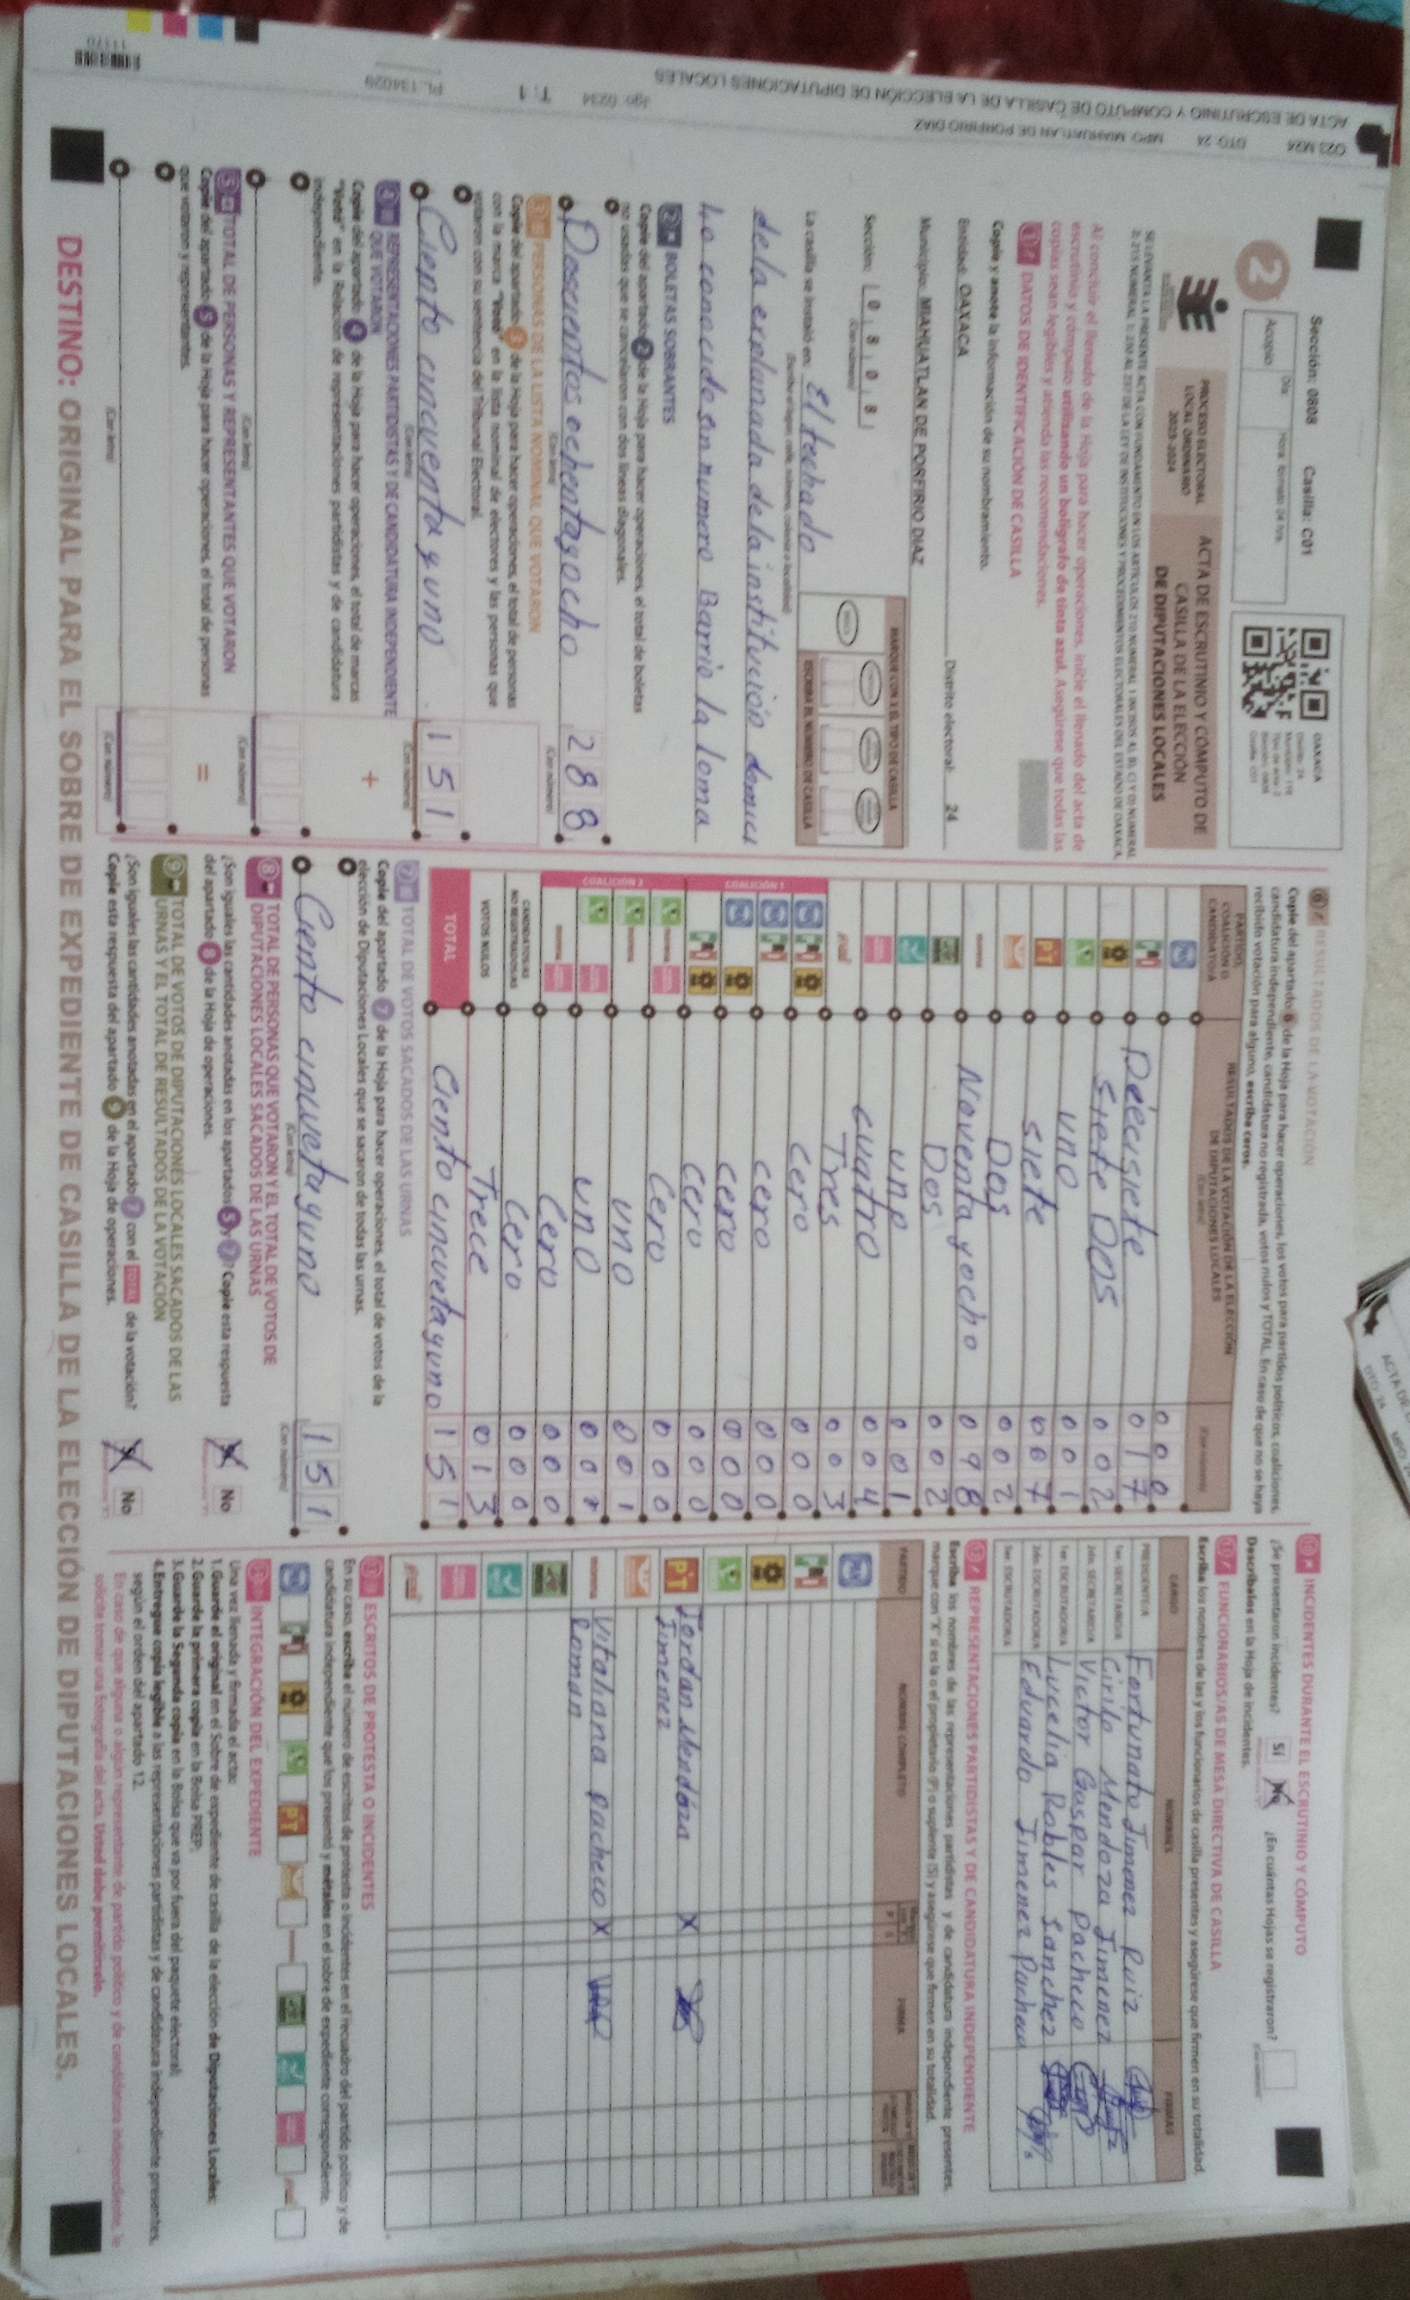 ACTA DE ESCRUTINIO Y CÓMPUTO DE CASILLA DE LA ELECCIÓN DE DIPUTACIONES LOCALES
O23 M24 DTO: 24 MPO: MIAHUATLAN DE PORFIRIO DIAZ
T: 1
PL_134029
Sección: 0808 Casilla: C01
2
Acopio
Día
OAXACA
PROCESO ELECTORAL
LOCAL ORDINARIO
2023-2024
ACTA DE ESCRUTINIO Y CÓMPUTO DE
CASILLA DE LA ELECCIÓN
DE DIPUTACIONES LOCALES
Al concluir el llenado de la Hoja para hacer operaciones, inicie el llenado del acta de
escrutinio y cómputo utilizando un bolígrafo de tinta azul. Asegúrese que todas las
copias sean legibles y atienda las recomendaciones.
1 DATOS DE IDENTIFICACIÓN DE CASILLA
Copie y anote la información de su nombramiento.
Entidad: OAXACA Distrito electoral: 24
Municipio: MIAHUATLAN DE PORFIRIO DIAZ
Sección: 0 8 0 8
(Con número)
MARQUE CON X EL TIPO DE CASILLA
ESCRIBA EL NÚMERO DE CASILLA
La casilla se instaló en: El techado
de la explanada de la institución domici
lio conocido sin numero Barrio la loma
2 BOLETAS SOBRANTES
Copie del apartado 2 de la Hoja para hacer operaciones, el total de boletas
no usadas que se cancelaron con dos líneas diagonales.
Doscientos ochenta y ocho 288
(Con letra) (Con número)
3 PERSONAS DE LA LISTA NOMINAL QUE VOTARON
Copie del apartado 3 de la Hoja para hacer operaciones, el total de personas
con la marca "Votó" en la lista nominal de electores y las personas que
votaron con su sentencia del Tribunal Electoral.
Ciento cincuenta y uno 151
(Con letra) (Con número)
4 REPRESENTACIONES PARTIDISTAS Y DE CANDIDATURA INDEPENDIENTE
QUE VOTARON
Copie del apartado 4 de la Hoja para hacer operaciones, el total de marcas
"Votó" en la Relación de representaciones partidistas y de candidatura
independiente.
+
(Con letra) (Con número)
5 TOTAL DE PERSONAS Y REPRESENTANTES QUE VOTARON
Copie del apartado 5 de la Hoja para hacer operaciones, el total de personas
que votaron y representantes.
=
(Con letra) (Con número)
6 RESULTADOS DE LA VOTACIÓN
Copie del apartado 6 de la Hoja para hacer operaciones, los votos para partidos políticos, coaliciones,
candidatura independiente, candidatura no registrada, votos nulos y TOTAL. En caso de que no se haya
recibido votación para alguno, escriba ceros.
PARTIDO,
COALICIÓN O
CANDIDATURA
RESULTADOS DE LA VOTACIÓN DE LA ELECCIÓN
DE DIPUTACIONES LOCALES
(Con letra)
(Con número)
000
Déecisiete 017
Siete Dos 002
uno 001
PT siete 007
Dos 002
Noventa y ocho 098
Dos 002
uno 001
cuatro 004
Tres 003
COALICIÓN 1
cero 000
cero 000
cero 000
cero 000
COALICIÓN 2
cero 000
uno 001
uno 001
Cero 000
CANDIDATURAS
NO REGISTRADAS
Cero 000
VOTOS NULOS
Trece 013
TOTAL
Ciento cincuetayuno 151
7 TOTAL DE VOTOS SACADOS DE LAS URNAS
Copie del apartado 7 de la Hoja para hacer operaciones, el total de votos de la
elección de Diputaciones Locales que se sacaron de todas las urnas.
Ciento cincuetayuno 151
(Con letra) (Con número)
8 TOTAL DE PERSONAS QUE VOTARON Y EL TOTAL DE VOTOS DE
DIPUTACIONES LOCALES SACADOS DE LAS URNAS
¿Son iguales las cantidades anotadas en los apartados 5 y 7? Copie esta respuesta
del apartado 8 de la Hoja de operaciones.
No
9 TOTAL DE VOTOS DE DIPUTACIONES LOCALES SACADOS DE LAS
URNAS Y EL TOTAL DE RESULTADOS DE LA VOTACIÓN
¿Son iguales las cantidades anotadas en el apartado 7 con el TOTAL de la votación?
Copie esta respuesta del apartado 9 de la Hoja de operaciones.
No
10 INCIDENTES DURANTE EL ESCRUTINIO Y CÓMPUTO
¿Se presentaron incidentes? Sí No ¿En cuántas Hojas se registraron?
Descríbalos en la Hoja de incidentes.
11 FUNCIONARIOS/AS DE MESA DIRECTIVA DE CASILLA
Escriba los nombres de las y los funcionarios de casilla presentes y asegúrese que firmen en su totalidad.
CARGO NOMBRES FIRMAS
PRESIDENTE/A Fortunato Jimenez Ruiz
1er. SECRETARIO/A Cirilo Mendoza Jimenez
2do. SECRETARIO/A Victor Gaspar Pacheco
1er. ESCRUTADOR/A Lucelia Robles Sanchez
2do. ESCRUTADOR/A Eduardo Jimenez Pacheco
3er. ESCRUTADOR/A
12 REPRESENTACIONES PARTIDISTAS Y DE CANDIDATURA INDEPENDIENTE
Escriba los nombres de las representaciones partidistas y de candidatura independiente presentes,
marque con "X" si es la o el propietario (P) o suplente (S) y asegúrese que firmen en su totalidad.
PARTIDO NOMBRE COMPLETO FIRMA
PT Jordan Mendoza X
Jimenez
Vitaliana Pacheco X
Roman
13 ESCRITOS DE PROTESTA O INCIDENTES
En su caso, escriba el número de escritos de protesta o incidentes en el recuadro del partido político y de
candidatura independiente que los presentó y métalos en el sobre de expediente correspondiente.
PT
14 INTEGRACIÓN DEL EXPEDIENTE
Una vez llenada y firmada el acta:
1. Guarde el original en el Sobre de expediente de casilla de la elección de Diputaciones Locales;
2. Guarde la primera copia en la Bolsa PREP;
3. Guarde la Segunda copia en la Bolsa que va por fuera del paquete electoral;
4. Entregue copia legible a las representaciones partidistas y de candidatura independiente presentes,
según el orden del apartado 12.
En caso de que alguna o algún representante de partido político y de candidatura independiente, le
solicite tomar una fotografía del acta, Usted debe permitírselo.
DESTINO: ORIGINAL PARA EL SOBRE DE EXPEDIENTE DE CASILLA DE LA ELECCIÓN DE DIPUTACIONES LOCALES.